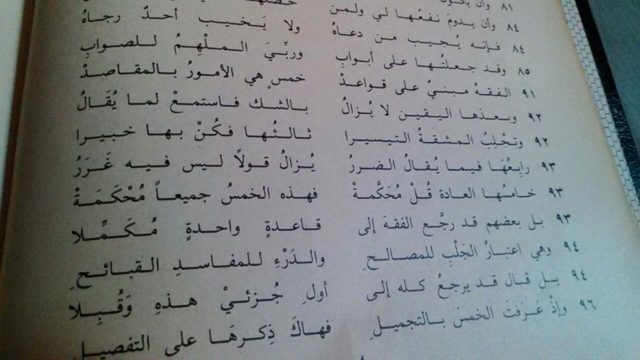 ٨١ وأن يكون
٨٤ وأن يدومَ نفعُها لي ولمن ولا يَخيب أحدٌ رجاهُ
٨٤ فإنه يُجيب من دعاهُ وربِّيَ المـلْهِمُ للصوابِ
٨٥ وقد جعلتُها على أبوابِ خمسٍ هي الأمورُ بالمقاصدْ
٩١ الفقهُ مبنيٌ على قواعدْ بالشك فاستمعْ لما يُقَالُ
٩٢ وبعدَها اليقين لا يُزالُ ثالثُها فكُنْ بها خبيرا
٩٢ وتجْلِبُ المشقةُ التيسيرا يُزالُ قولاً ليس فيه غَرَرُ
٩٣ رابعُها فيما يُقالُ الضررُ فهذه الخمسُ جميعاً مُحْكَمَهْ
٩٣ خامسُها العادة قُلْ مُحَكَّمةْ قاعدةٍ واحدةٍ مُكَمِّلا
٩٣ بل بعضُهم قد رجَّع الفقهَ إلى والدَرْءِ للمفاسدِ القبائحِ
٩٤ وهي اعتبارُ الجَلْبِ للمصالحِ أولِ جُزئيْ هذهِ وَقُبِلا
٩٤ بـل قال قد يرجعُ كله إلى فهاكَ ذِكرَها على التفصيلِ
٩٦ وإذْ عَرَفتَ الخمسَ بالتجميلِ